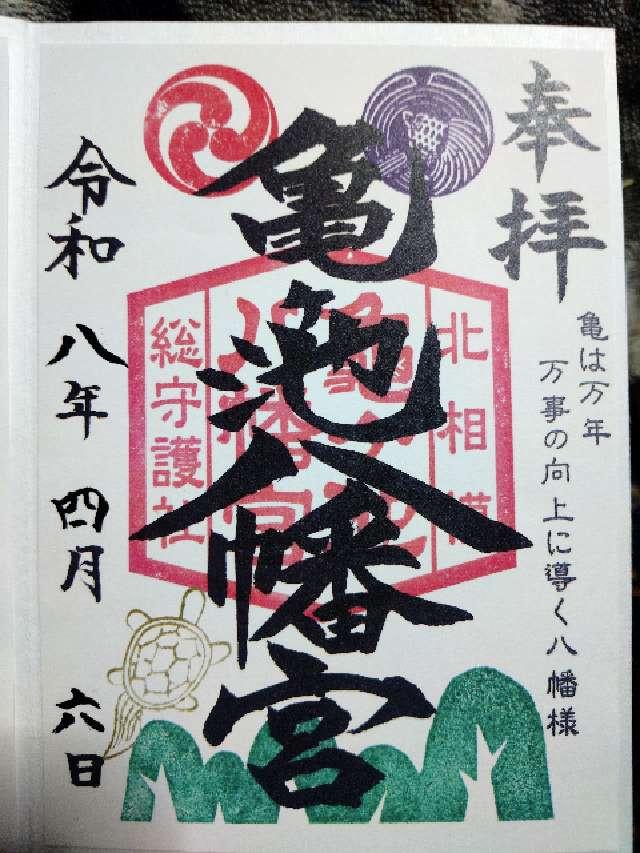 奉拝
亀は万年
万事の向上に導く八幡様
北相模
亀ヶ池
八幡宮
総守護社
亀池八幡宮
令和八年四月六日